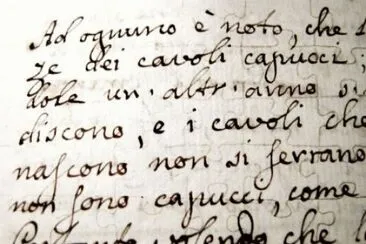 Ad ognuno è noto, che
ze dei cavoli capucci;
dole un' altr' anno si
discono, e i cavoli che
nascono non si serrano
non sono capucci, come
volendo che